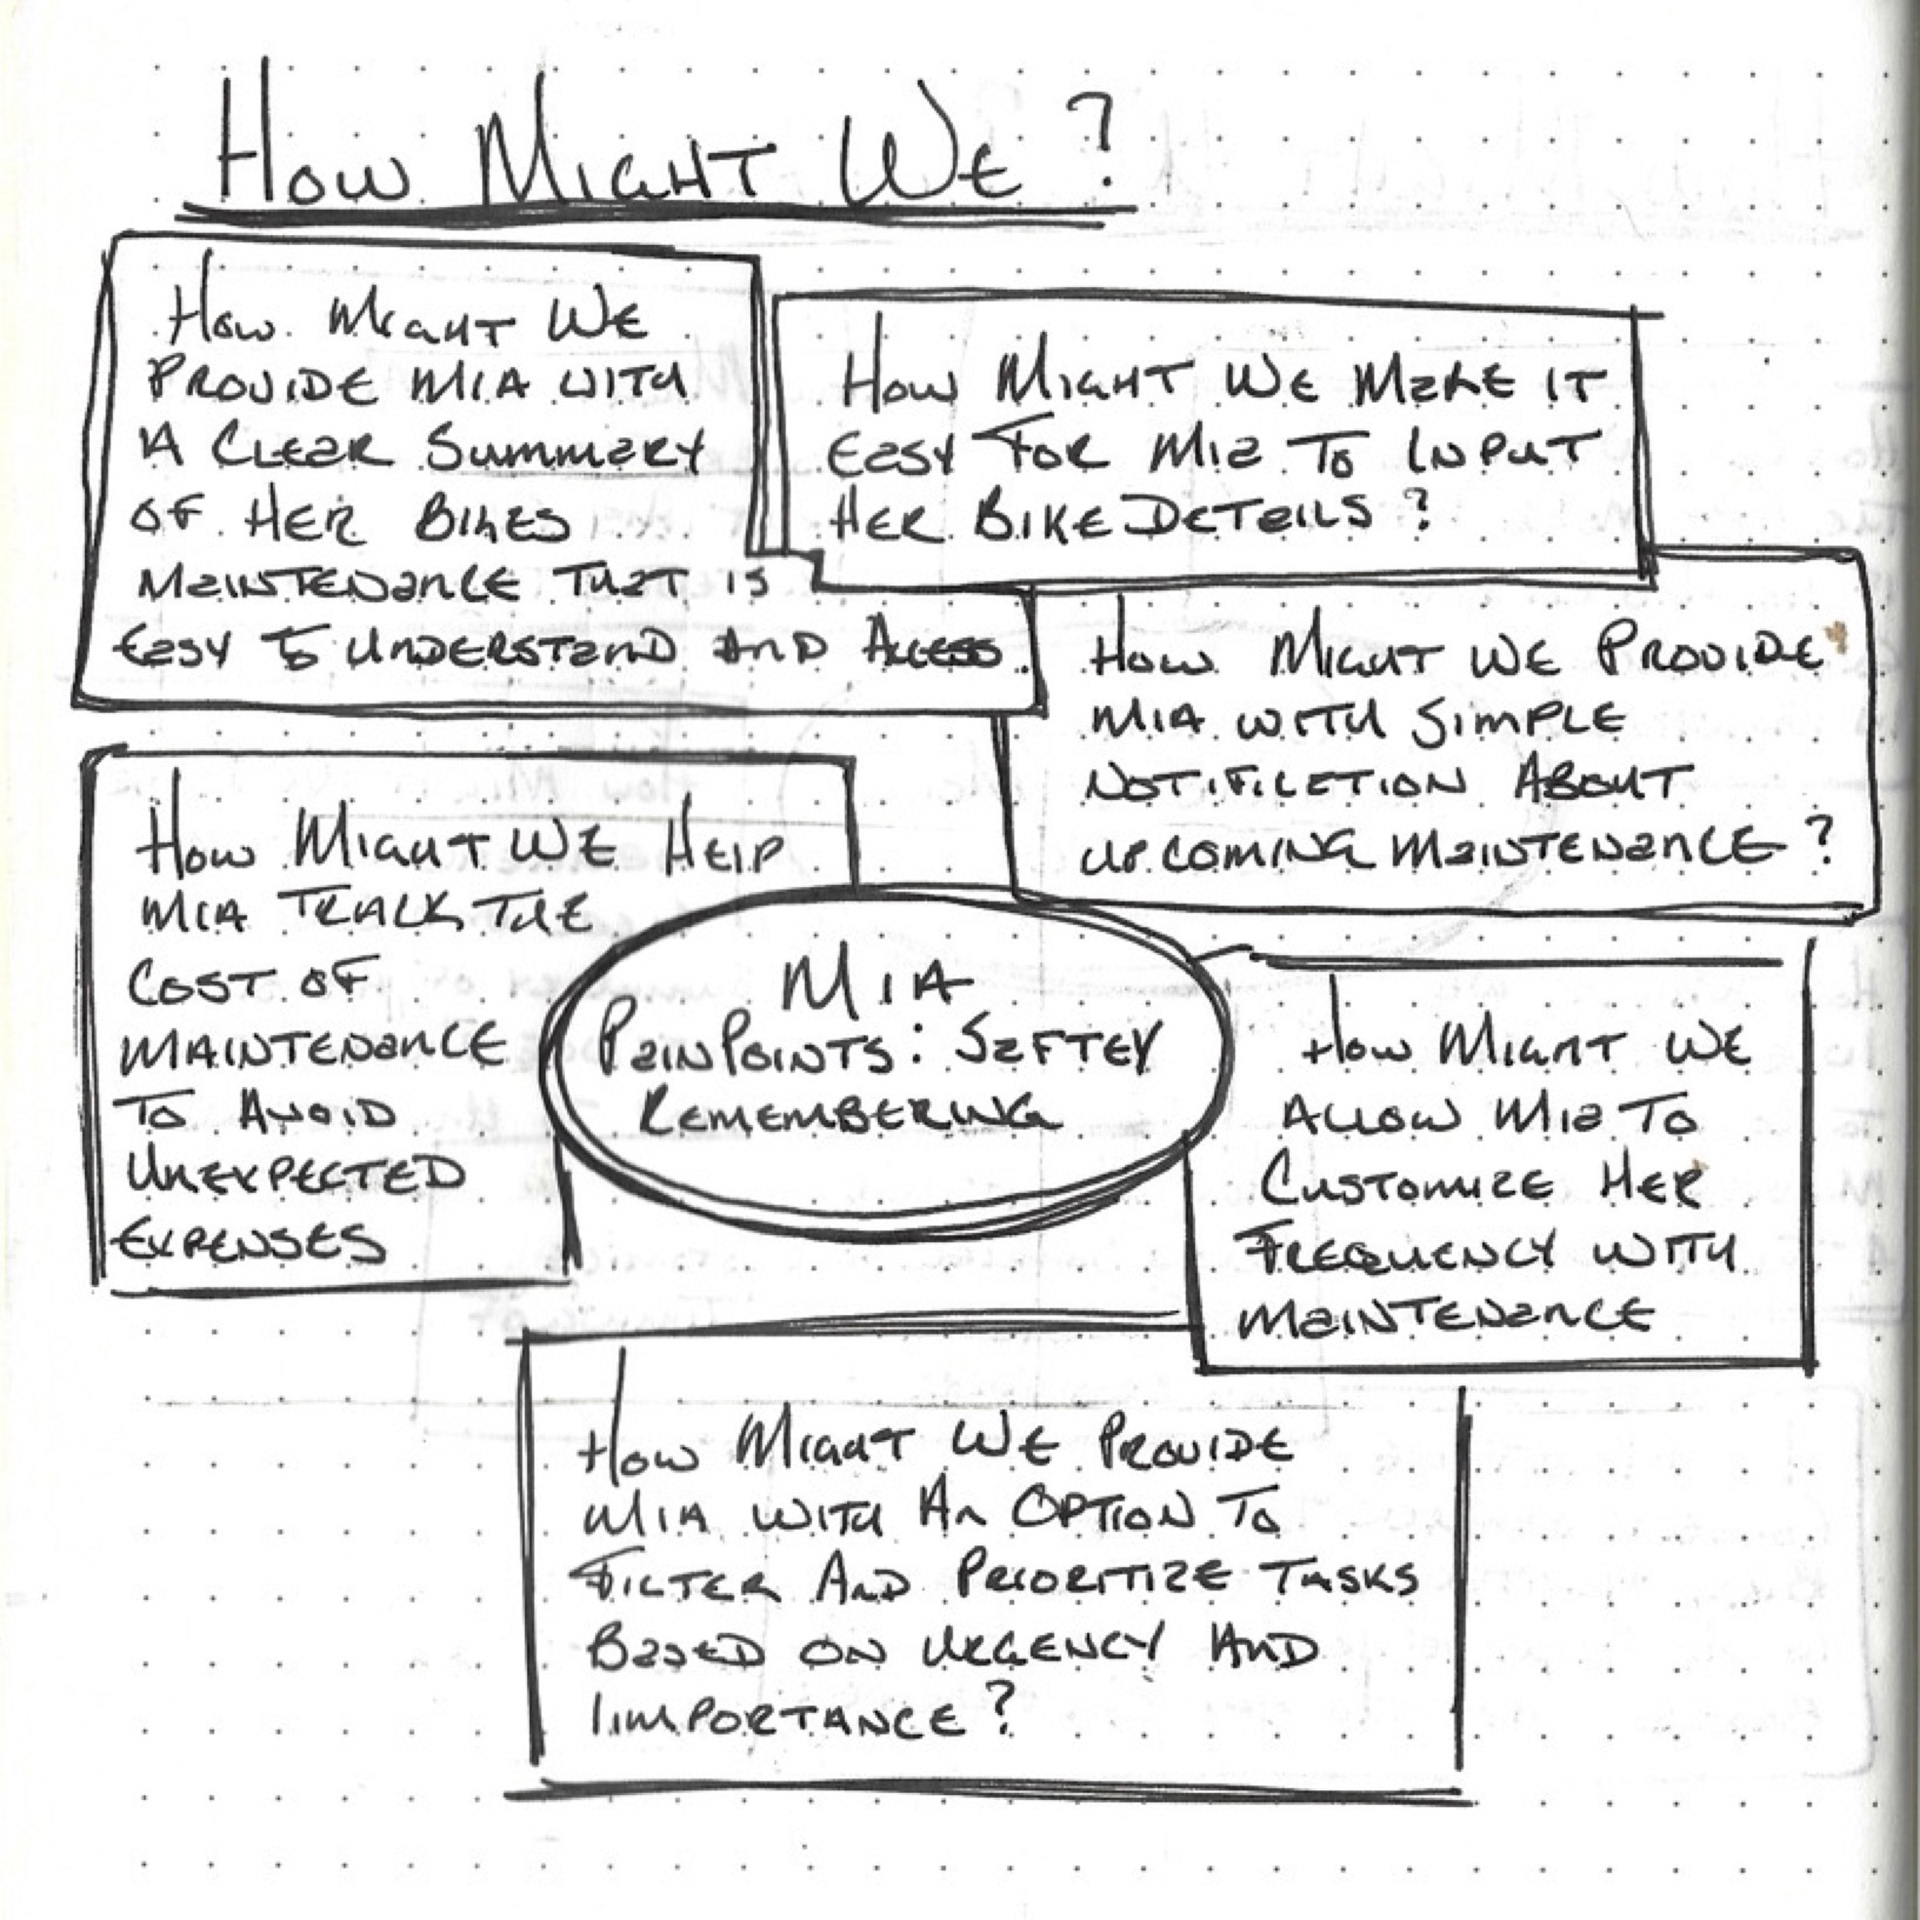 How Might We?
How Might We
Provide Mia with
A Clear Summary
of Her Bikes
Maintenance That is
Easy to Understand and Access.
How Might We Make it
Easy For Mia To Input
Her Bike Details?
How Might We Provide
Mia with Simple
Notification About
upcoming Maintenance?
How Might We Help
Mia Track The
Cost of
Maintenance
To Avoid
Unexpected
Expenses
Mia
PainPoints: Saftey
Remembering
How Might We
Allow Mia To
Customize Her
Frequency with
Maintenance
How Might We Provide
Mia with An Option To
Filter And Prioritize Tasks
Based on Urgency And
Importance?